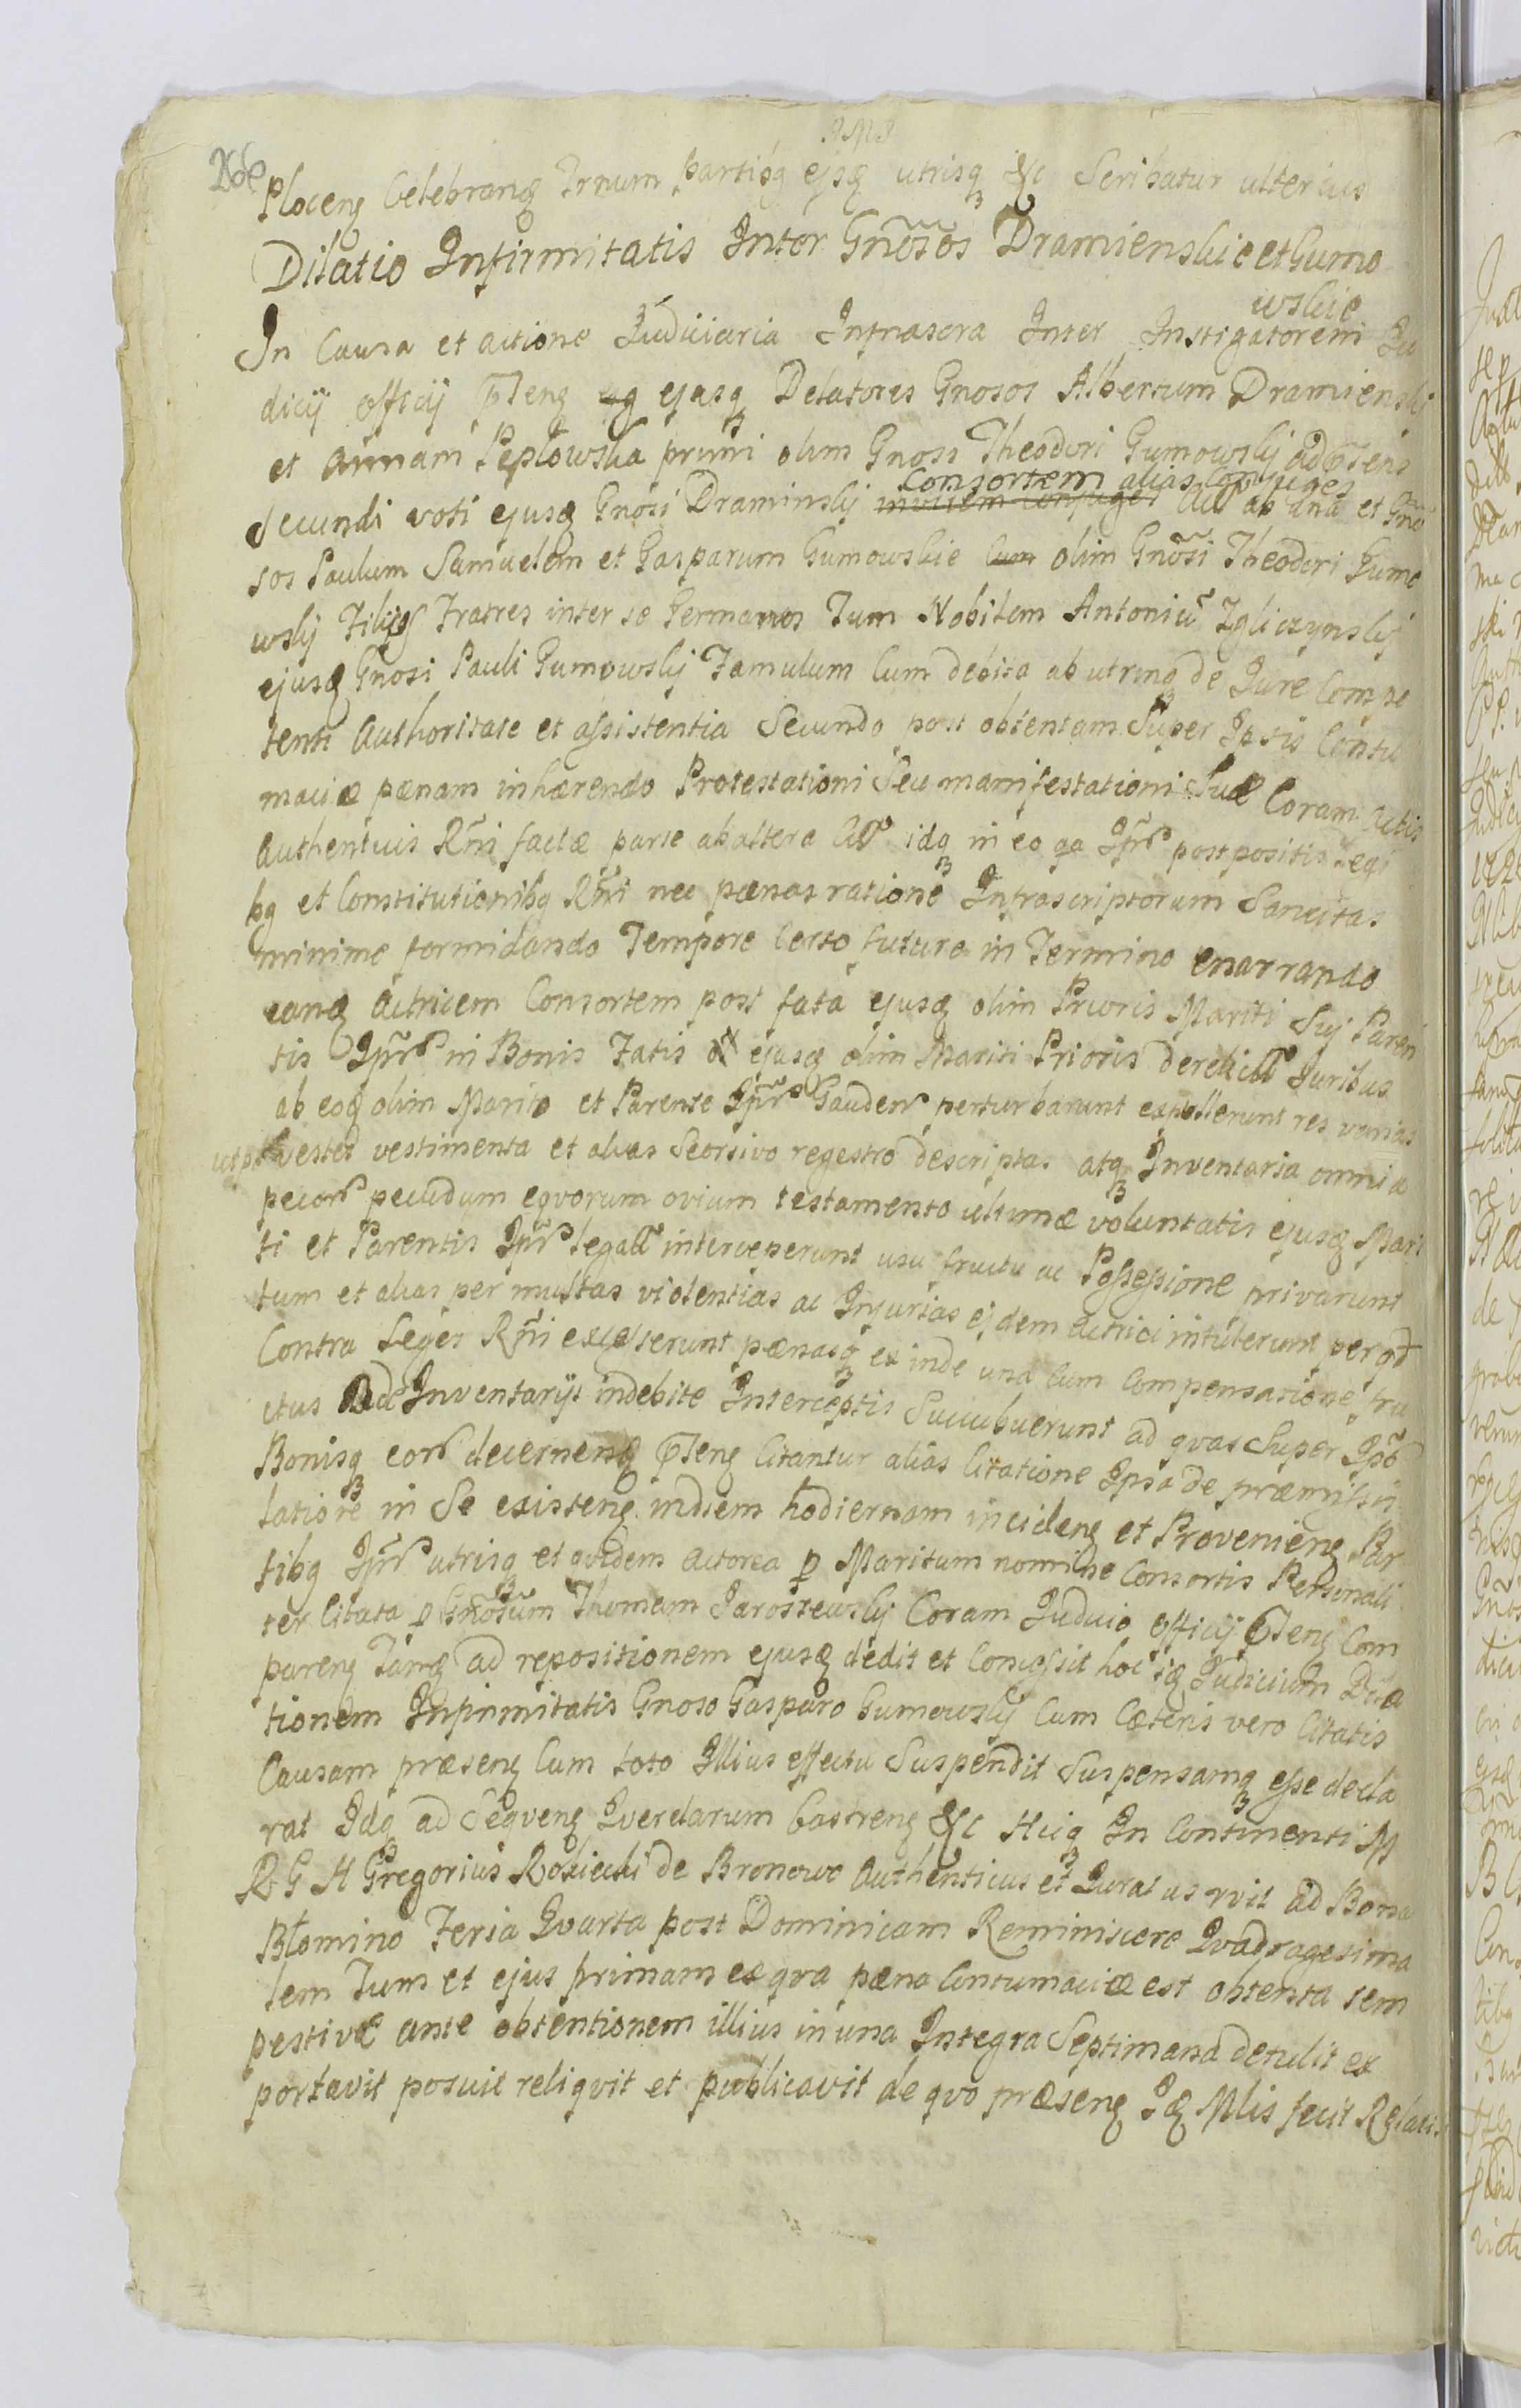 JMJ
Plocenȝ Celebranȝ Trnum partisq ejsȝ utrisq &c Scribatur ulterius
Dilatio Infirmitatis Inter Gnosos Dramienskie et Gumo
wskie
In Causa et actione Judiciaria Infrascra Inter Instigatorem Ju
dicij officij pTenȝ ejusq Delatores Gnosos Albertum Dramienskj
et annam Peplowska primi olim Gnosi Theodori Gumowskj ad pTens
Consortem alias Conjuges
Secundi voti ejusȝ Gnosi Draminskj invicem Conjuges Act ab una et Gno
sos Paulum Samuelem et Gasparum Gumowskie Cum olim Gnosi Theodori Gumo
wskj Filijs Fratres inter se Germanos Tum Nobilem Antoniu Zgliczynskj
ejusȝ Gnosi Pauli Gumowskj Famulum Cum debita ab utrinq de Jure Compe
tenti Authoritate et assistentia Secundo post obtentam Super Ipsis Contu
maciæ pœnam inhærendo Protestationi Seu manifestationi Suæ Coram Actis
Authenticis Rni factæ parte ab altera Citt idq in eo qa Ipsi postpositis Legi
bq et Constitutionibq Rni nec pœnas ratione Infrascriptorum Sancitas
minime formidando Tempore Certo futuro in Termino enarrando
eanȝ Actricem Consortem post fata ejusȝ olim Prioris Mariti Suj Paren
tis Ipsr in Bonis Fatis ejusȝ olim Mariti Prioris derelictt Juribus
ab eoȝ olim Marito et Parente Ipsr Gauden perturbarunt expullerunt res varias
utpt vestes vestimenta et alias Seorsivo regestro descriptas atq Inventaria omnia
pecorr pecudum eqvorum ovium testamento ultimæ voluntatis ejusȝ Mari
ti et Parentis Ipsr legatt interceperunt usu fructu ac Possessione privarunt
tum et alias per multas violentias ac Injurias ejdem Actrici intulerunt per qd
Contra Leges Rni excesserunt pœnasq ex inde una Cum Compensatione fru
ctus de Inventarijs indebite Interceptis Succubuerunt ad qvas Super Ipsis
Bonisq eorr decernenȝ pTenȝ Citantur alias Citatione Ipsa de præmissis
latiore in Se existenȝ indiem hodiernam incidenȝ et Provenienȝ Par
tibq Ipsr utrisq et qvidem Actorea p Maritum nomine Consortis Personali
ter Citata p Gnosum Thomam Jaroszewskj Coram Judicio officij pTenȝ Com
parenȝ Tanȝ ad repositionem ejusȝ dedit et Concessit hoc iȝ Judicium Dila
tionem Infirmitatis Gnoso Gasparo Gumowskj Cum Cæteris vero Citatis
Causam præsenȝ Cum toto Illius effectu Suspendit Suspensamq esse decla
rat Idq ad Seqvenȝ Qverelarum Castrenȝ &c Hicq In Continenti M
R G H Gregorius Rokicki de Bronowo Authenticus et Juratus rvit ad Bona
Blomino Feria Qvarta post Dominicam Reminiscere Qvadragesima
lem Tum et ejus primam ex qva pœna Contumaciæ est obtenta tem
pestivæ ante obtentionem illius in una Integra Septimana detulit ex
portavit posuit reliqvit et publicavit de qvo præsenȝ Jȝ Mlis fecit Relatio